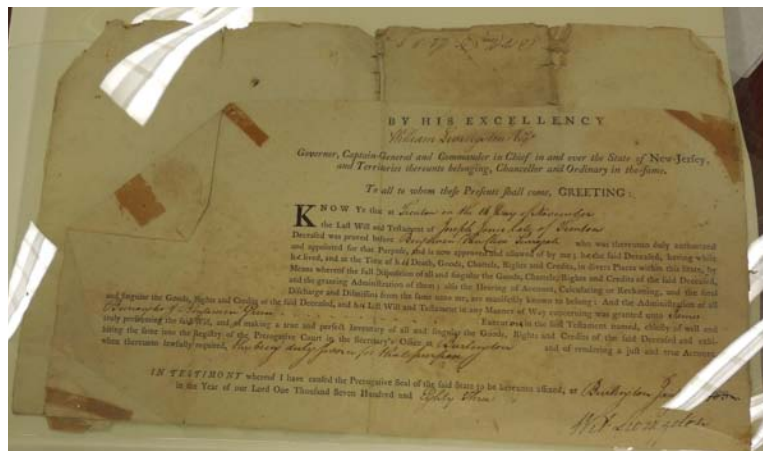 BY HIS EXCELLENCY
William Livingston Esqr
Governor, Captain-General and Commander in Chief in and over the State of New-Jersey,
and Territories thereunto belonging, Chancellor and Ordinary in the same.
To all to whom these Presents shall come, GREETING:
KNOW Ye that at Trenton on the Day of November
the Last Will and Testament of Joseph late of Trenton
Deceased was proved before who was thereunto duly authorized
and appointed for that Purpose, and is now approved and allowed of by me; he the said Deceased, having while
he lived, and at the Time of his Death, Goods, Chattels, Rights and Credits, in divers Places within this State, by
Means whereof the full Disposition of all and singular the Goods, Chattels, Rights and Credits of the said Deceased,
and the granting Administration of them; also the Hearing of Account, Calculating or Reckoning, and the final
Discharge and Dismission from the same unto me, are manifestly known to belong: And the Administration of all
and singular the Goods, Rights and Credits of the said Deceased, and his Last Will and Testament in any Manner of Way concerning was granted unto James
Execut in the said Testament named, chiefly of well and
truly performing the said Will, and of making a true and perfect Inventory of all and singular the Goods, Rights and Credits of the said Deceased and exhi-
biting the same into the Registry of the Prerogative Court in the Secretary's Office at Burlington and of rendering a just and true Account
when thereunto lawfully required, duly sworn for that purpose
IN TESTIMONY whereof I have caused the Prerogative Seal of the said State to be hereunto affixed, at Burlington
in the Year of our Lord One Thousand Seven Hundred and Eighty three
Wil Livingston